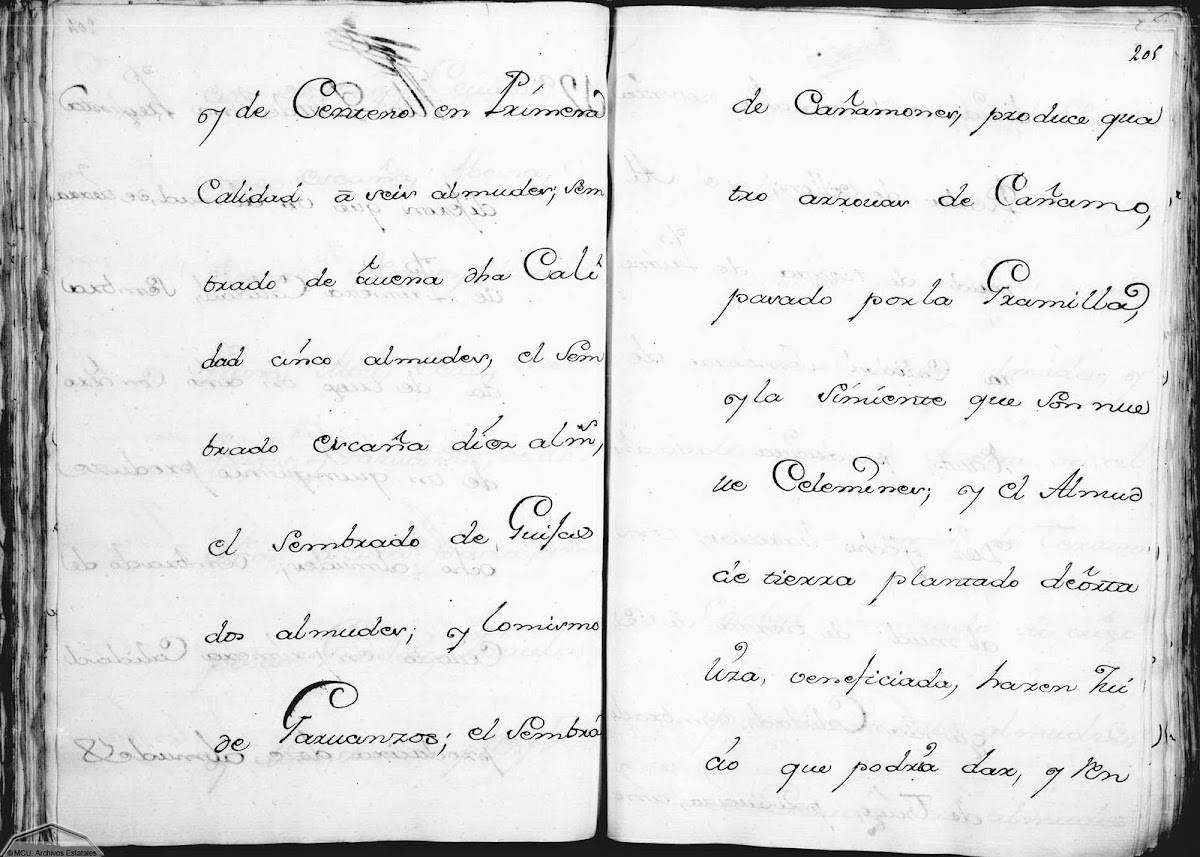 y de Centeno en Primera
Calidad, â seis almudes; sem
brado de Auena dha Cali
dad cinco almudes, el sem
brado escaña diez alms,
el sembrado de Guijas
dos almudes; y lo mismo
de Garuanzos; el sembra
205
de Cañamones, produce qua
tro arrouas de Cañamo,
pasado por la Gramilla,
y la simiente que son nue
ue Celemines; y el Almud
de tierra plantado de orta
liza, veneficiada, hazen Jui
cio que podra dar, y ren
© MCU. Archivos Estatales